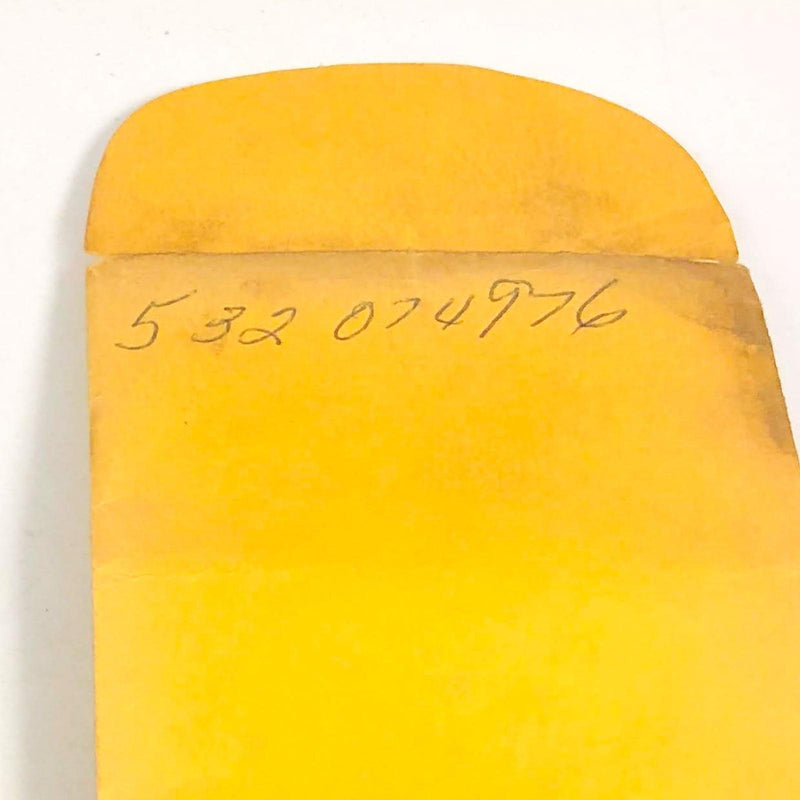 532 074976